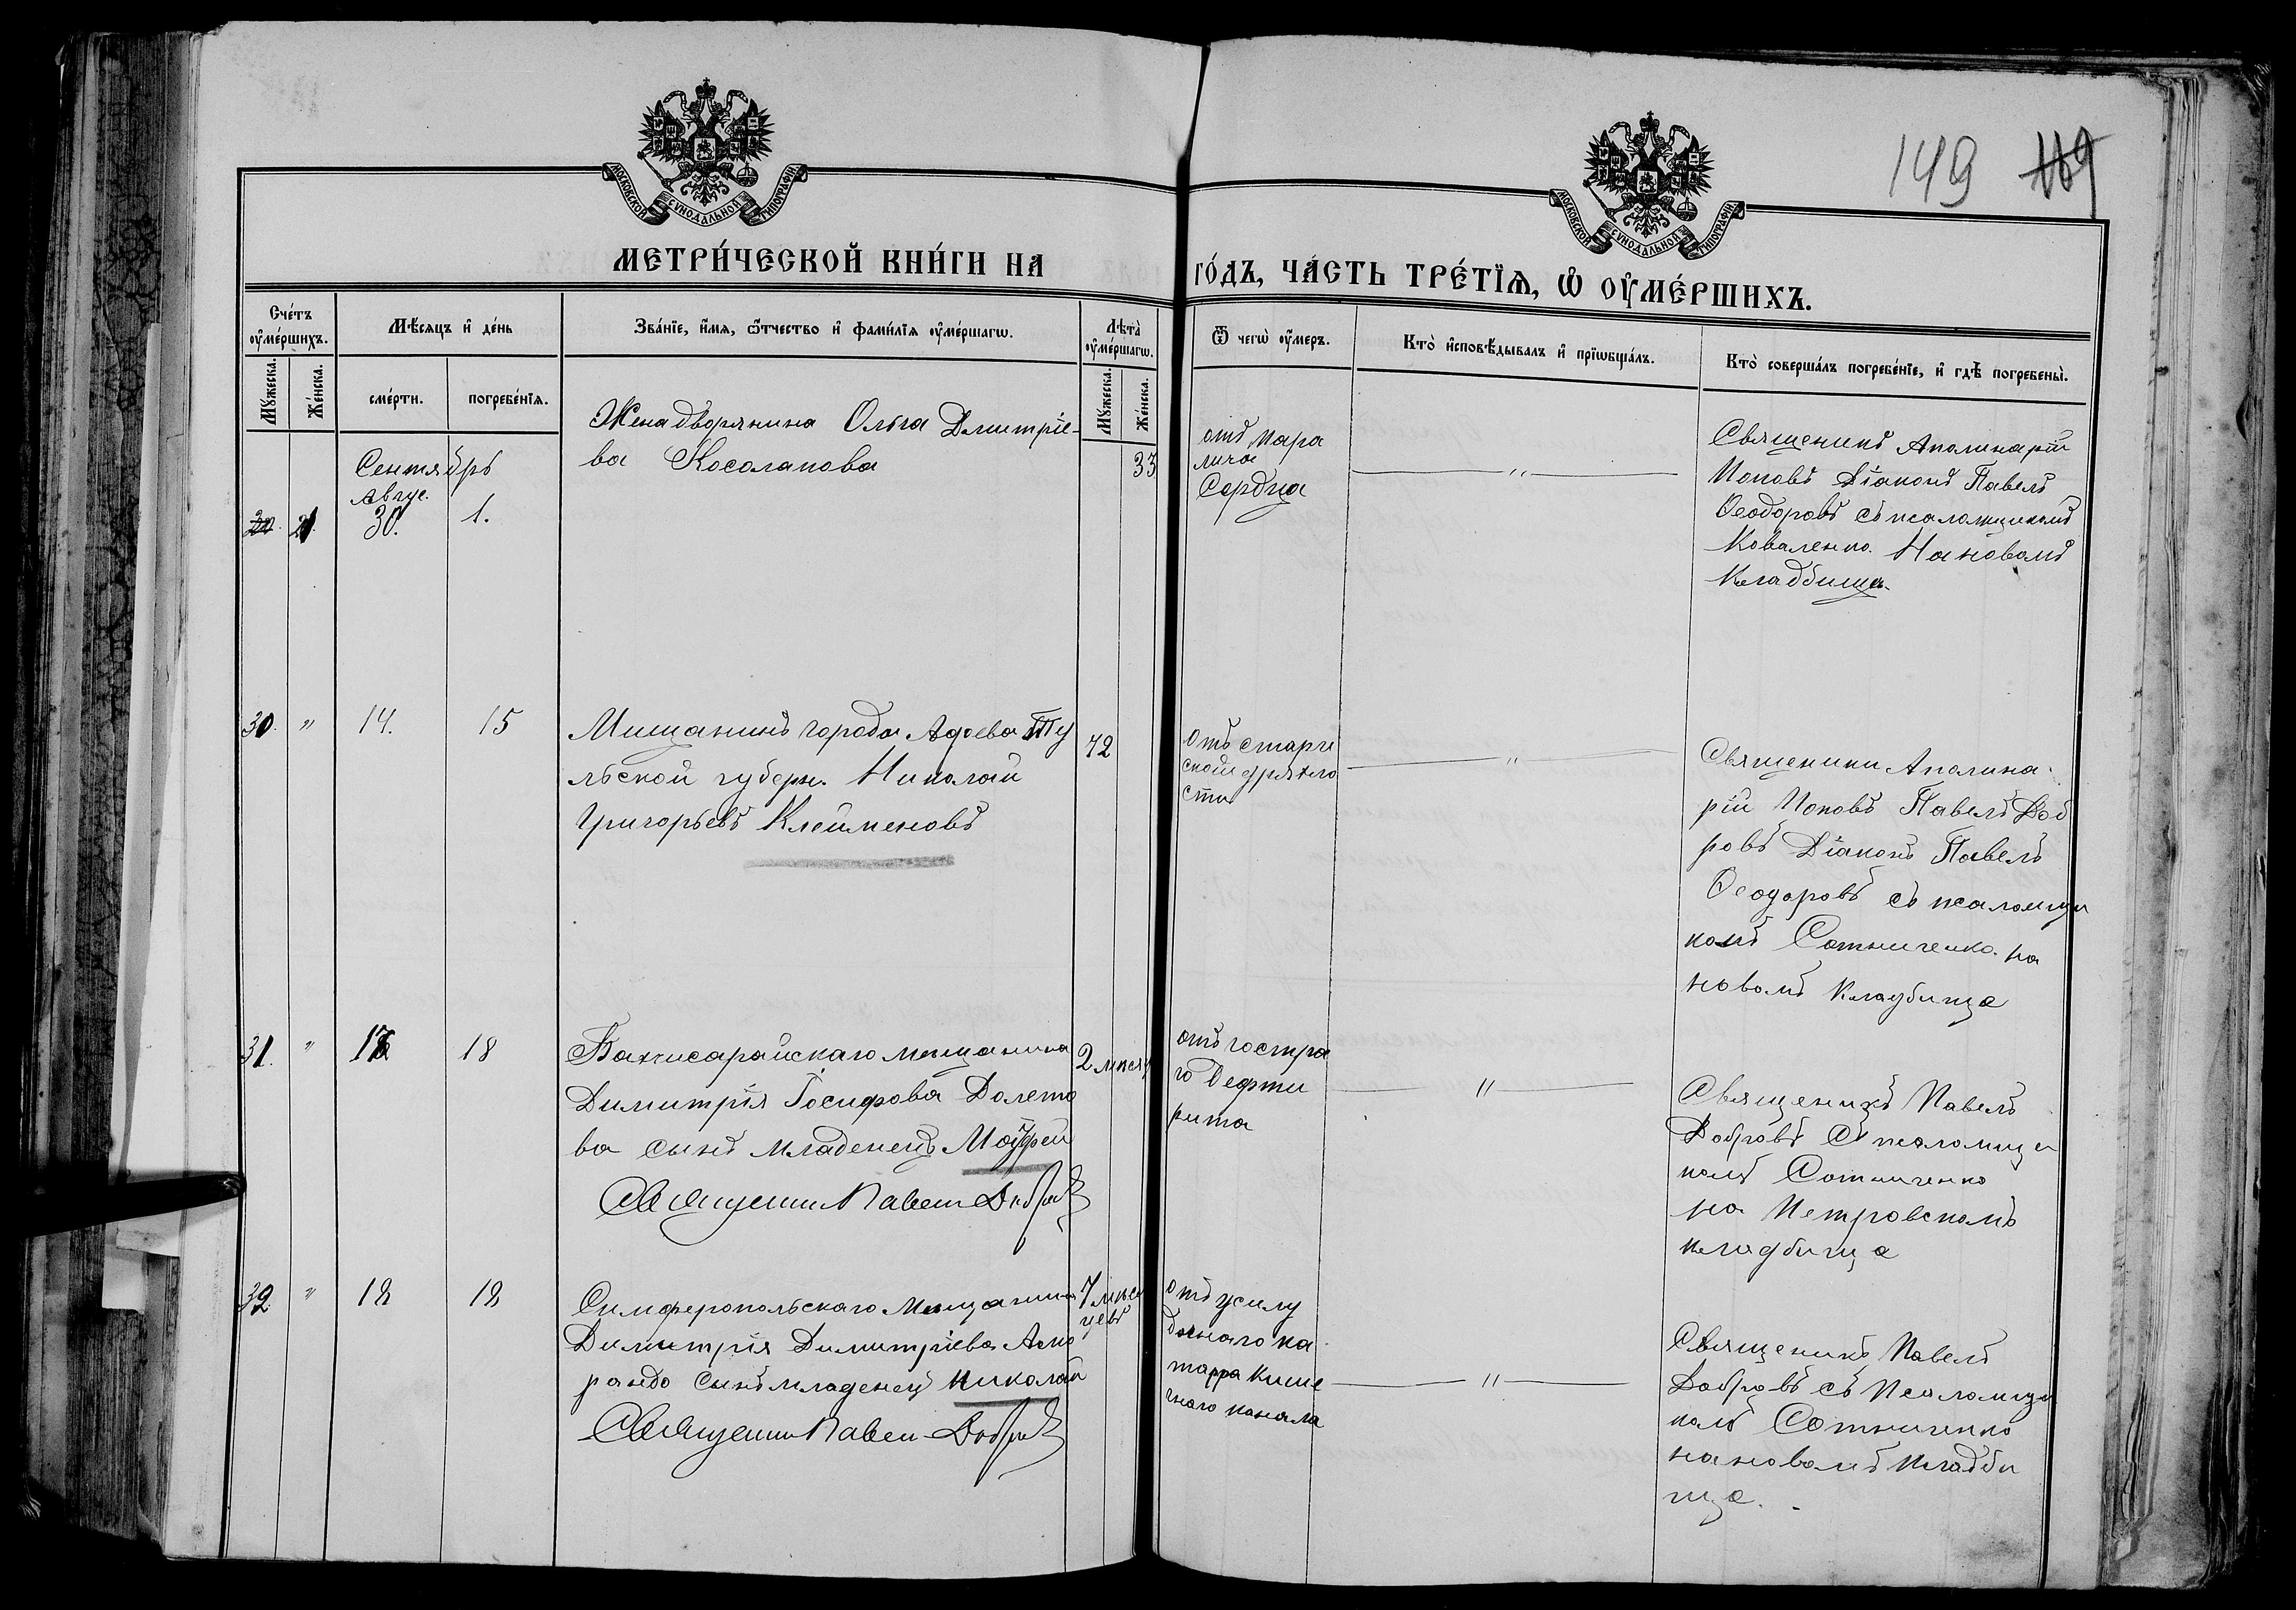 149 119
МОСКОВСКОЙ СѴНОДАЛЬНОЙ ТИПОГРАФІИ
МОСКОВСКОЙ СѴНОДАЛЬНОЙ ТИПОГРАФІИ
МЕТРИ́ЧЕСКОЙ КНИ́ГИ НА ГО́ДЪ, ЧА́СТЬ ТРЕ́ТЇѦ, Ѡ҆ ОУ҆МЕ́РШИХЪ.
Сче́тъ оу҆ме́ршихъ.
Мꙋ́жеска.
Же́нска.
Мѣ́сяцъ и҆ де́нь
сме́рти.
погребе́нїѧ.
Зва́нїе, и҆́мѧ, ѻ҆́тчество и҆ фами́лїѧ оу҆ме́ршагѡ.
Лѣ́та оу҆ме́ршагѡ.
Мꙋ́жеска.
Же́нска.
Ѿ чегѡ̀ оу҆́меръ.
Кто̀ и҆сповѣ́дывалъ и҆ прїѡбща́лъ.
Кто̀ соверша́лъ погребе́нїе, и҆ гдѣ̀ погребены̀.
Сентябрь
Авгус.
21. 30. 1.
Жена дворянина Ольга Дмитріе-
ва Косолапова
33
отъ пара
лича
сердца
"
Священникъ Аполинарій
Поповъ Діаконъ Павелъ
Ѳеодоровъ съ псаломщикомъ
Коваленко. На новомъ
Кладбища.
30. " 14. 15
Мищанинъ города Адоева Ту
льской губерн. Николай
Григорьевъ Клейменовъ
72
Отъ старч
ской дряхло
сти
"
Священики Аполина-
рій Поповъ Павелъ Доб
ровъ Діаконъ Павелъ
Ѳеодоровъ съ псаломщи
комъ Сотниченко. на
новомъ Кладбища
31. " 18
Бахчисарайскаго мещанина
Димитрія Іосифова Долето
ва сынъ младенецъ
Священник Павел Добров
2 месяц
отъ гостра
го Дефти
рита
"
Священикъ Павелъ
Добровъ съ псаломщи
комъ Сотниченко
на Петровскомъ
кладбища
32 " 18 18
Симферопольскаго Мещанина
Димитрія Димитріева
сынъ младенец Николай
Священник Павел Добров
7 месе
цевъ
отъ
на
тарра кише
чнаго канала
"
Священикъ Павелъ
Добровъ съ Псаломщи
комъ Сотниченко
на новомъ Кладби
ща.